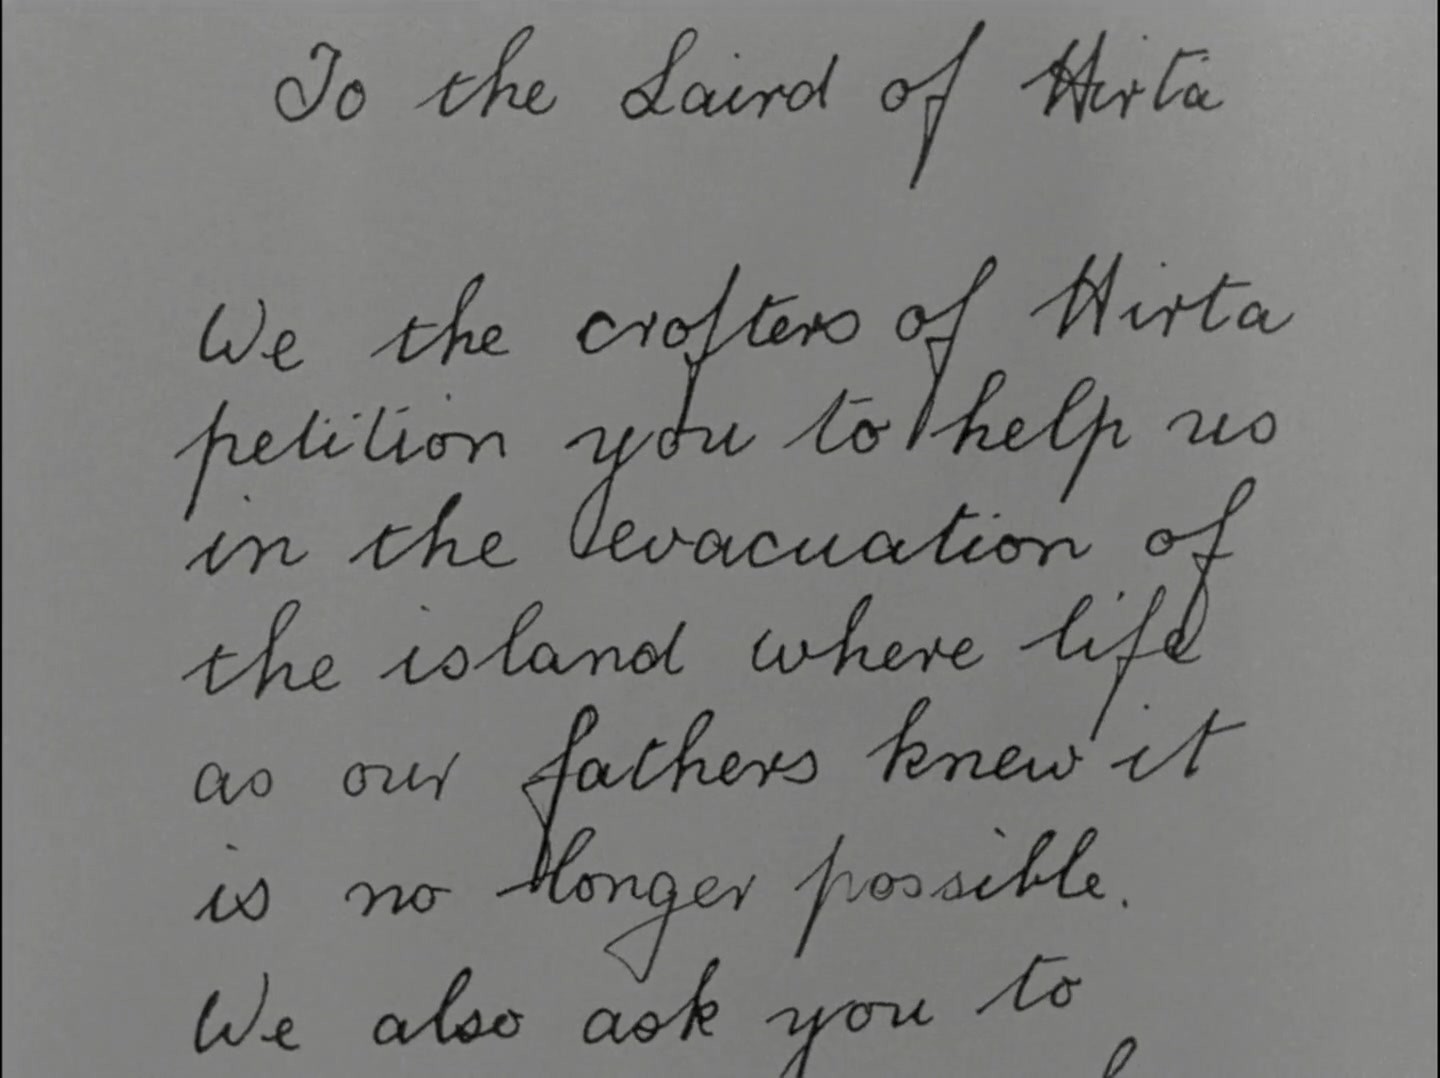 To the Laird of Hirta
We the crofters of Hirta
petition you to help us
in the evacuation of
the island where life
as our fathers knew it
is no longer possible.
We also ask you to